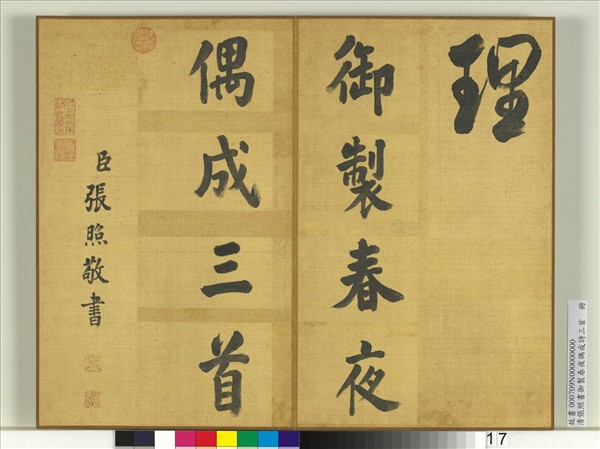 理
御製春夜
偶成三首
臣張照敬書
故書000709N000000000
清張照書御製春夜偶成詩三首 冊
17